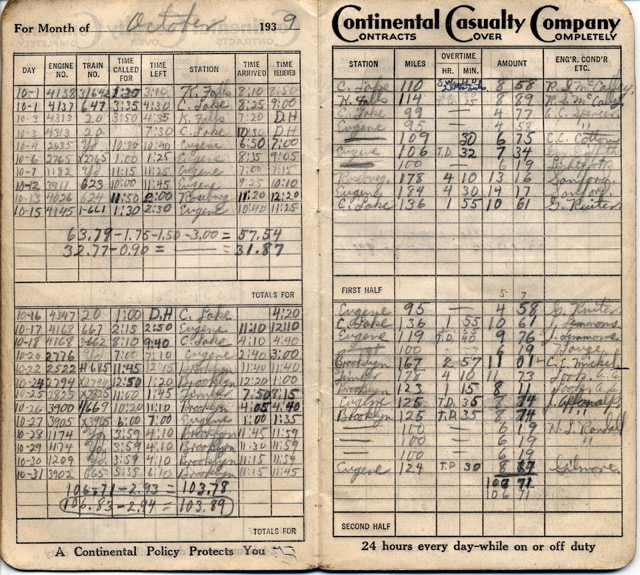 For Month of October 1939
DAY ENGINE NO. TRAIN NO. TIME CALLED FOR TIME LEFT STATION TIME ARRIVED TIME RELIEVED
10-1 4138 3/642 1:20 3:40 K. Falls 8:10 8:50
10-1 4137 647 3:35 4:30 C. Lake 8:25 9:00
10-3 4313 20 3:50 4:35 K. Falls 7:20 D.H
10-3 4313 20 7:30 C. Lake 10:30 D.H
10-4 2635 Yd 10:30 10:40 Eugene 6:50 7:00
10-6 2765 X2765 1:00 1:25 Eugene 8:35 9:05
10-7 1182 Yd 11:15 11:25 Eugene 7:00 7:15
3911 623 10:00 11:45 Eugene 9:25 10:10
10-13 4026 624 11:50 2:00 Roseburg 11:20 12:20
10-15 4145 1-661 1:30 2:30 Eugene 10:40 11:25
63.79-1.75-1.50-3.00 = 57.54
32.77-0.90 = 31.87
TOTALS FOR
10-16 4347 20 1:00 D.H C. Lake 4:20
10-17 4168 667 2:15 2:50 Eugene 11:10 12:10
10-18 4168 3-662 8:10 9:40 C. Lake 4:10 4:40
10-20 2776 Yd 7:00 7:10 Eugene 2:40 3:00
10-22 2522 #685 11:45 12:15 Brooklyn 11:40 11:40
10-24 2794 X2794 12:50 1:20 Brooklyn 12:20 1:00
10-25 2825 X2825 11:00 1:45 7:50 8:15
10-26 3900 #669 10:20 11:10 Brooklyn 4:05 4:40
10-27 3905 X3905 6:00 7:00 Eugene 1:00 1:35
10-28 1174 Yd 3:59 4:10 Brooklyn 11:45 11:59
10-29 1174 Yd 3:59 4:10 Brooklyn 11:30 11:59
10-30 1209 Yd 3:59 4:10 Brooklyn 11:15 11:59
10-31 3902 665 5:35 6:15 Brooklyn 11:15 11:45
106.71-2.93 = 103.78
106.83-2.94 = 103.89
TOTALS FOR
A Continental Policy Protects You
Continental Casualty Company
CONTRACTS COVER COMPLETELY
STATION MILES OVERTIME HR. MIN. AMOUNT ENG'R. COND'R ETC.
C. Lake 110 8 58 R.S. McCalley
K. Falls 114 T.D. 35 8 89 R.S. McCalley
C. Lake 99 — 4 77 C.C. Spencer
Eugene 95 — 4 58
109 30 6 75 C.C. Cotton
Eugene 106 T.D. 32 7 34
100 — 6 19
Roseburg 178 4 10 13 16 Sanford
Eugene 184 4 30 14 17 Sanford
C. Lake 136 1 55 10 61 G. Ruiter
FIRST HALF
Eugene 95 — 4 58 G. Ruiter
C. Lake 136 1 55 10 61 J. Simmons
Eugene 119 T.D. 40 9 76 J. Simmons
100 — 6 19
Brooklyn 167 2 57 11 01 C.J. Mickel
175 4 10 11 73
Brooklyn 123 1 15 8 11
Eugene 125 T.D. 35 8 74
Brooklyn 125 T.D. 35 8 74 "
100 — 6 19 H.L. Randall
100 6 19 "
100 6 19
Eugene 124 T.D 30 8 67 Gilmore
106 71
106 71
SECOND HALF
24 hours every day—while on or off duty